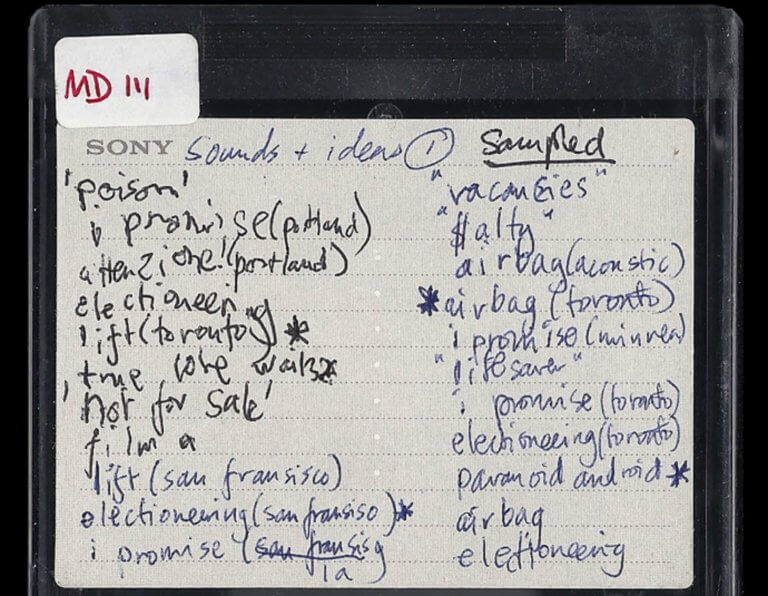 MD 111
SONY sounds + ideas ① Sampled
'poison'
i promise (portland)
attenzione! (portland)
electioneering
lift (toronto) *
true love waits *
'Not for Sale'
film a
lift (san fransisco)
electioneering (san fransiso) *
i promise (san fransisg
la)
"vacancies"
"$alty"
airbag (acoustic)
* airbag (toronto)
i promise (
"lifesaver"
i promise (toronto)
electioneering (toronto)
paranoid android *
airbag
electioneering